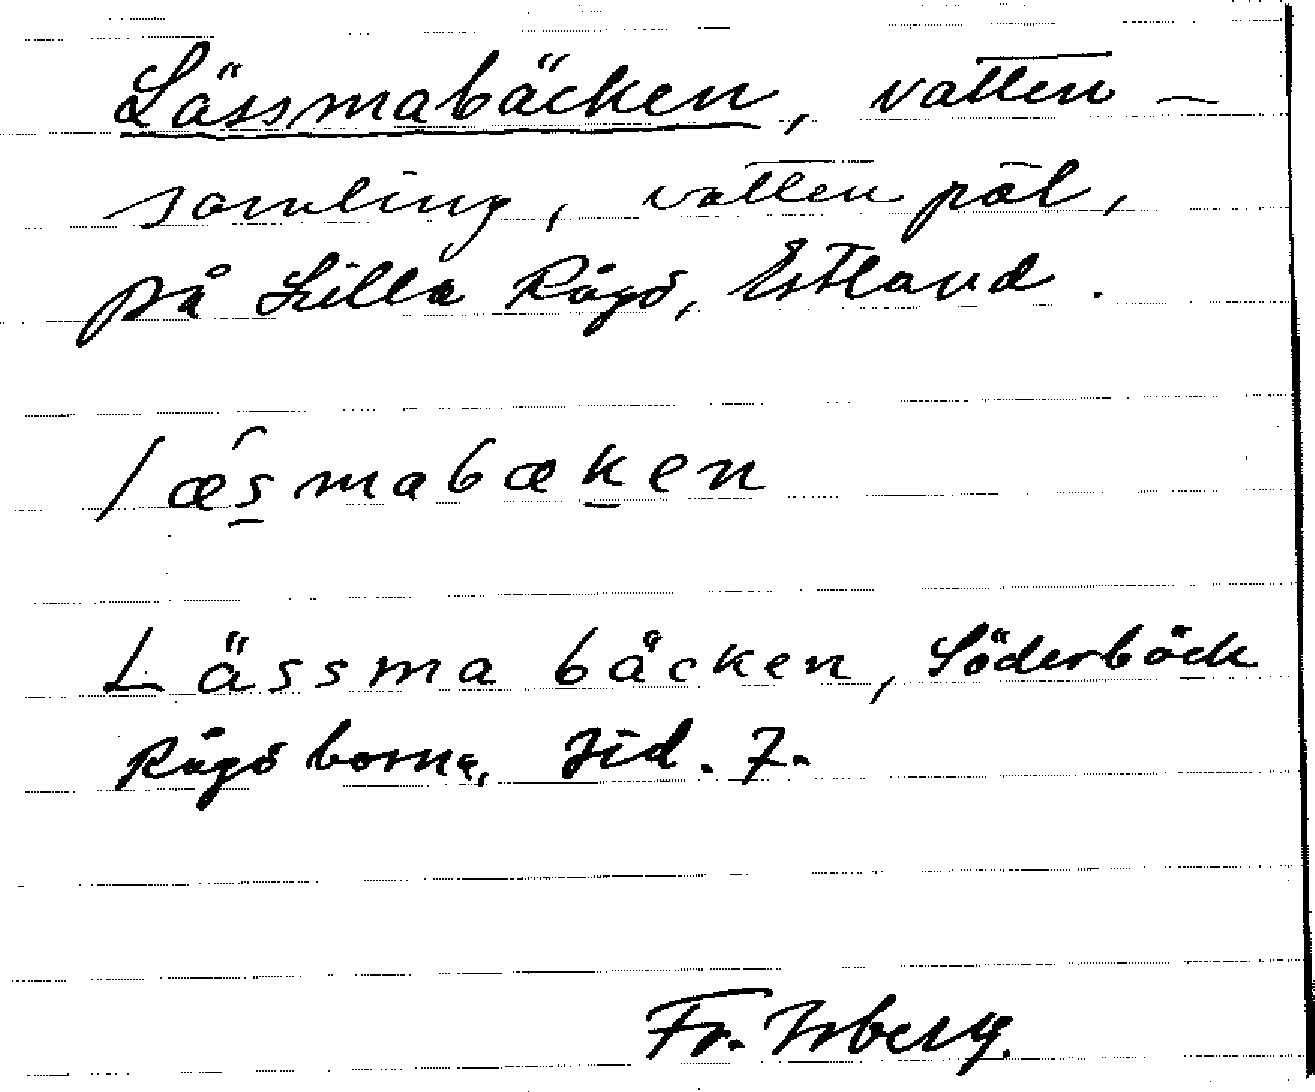 Lässmabäcken, vatten-
samling, vattenpöl,
på Lilla Rågö, Estland.
læ´s̲mabæk̲en
Lässmabäcken, Söderbäck
Rågöborna, sid. 7.
Fr. Isberg.